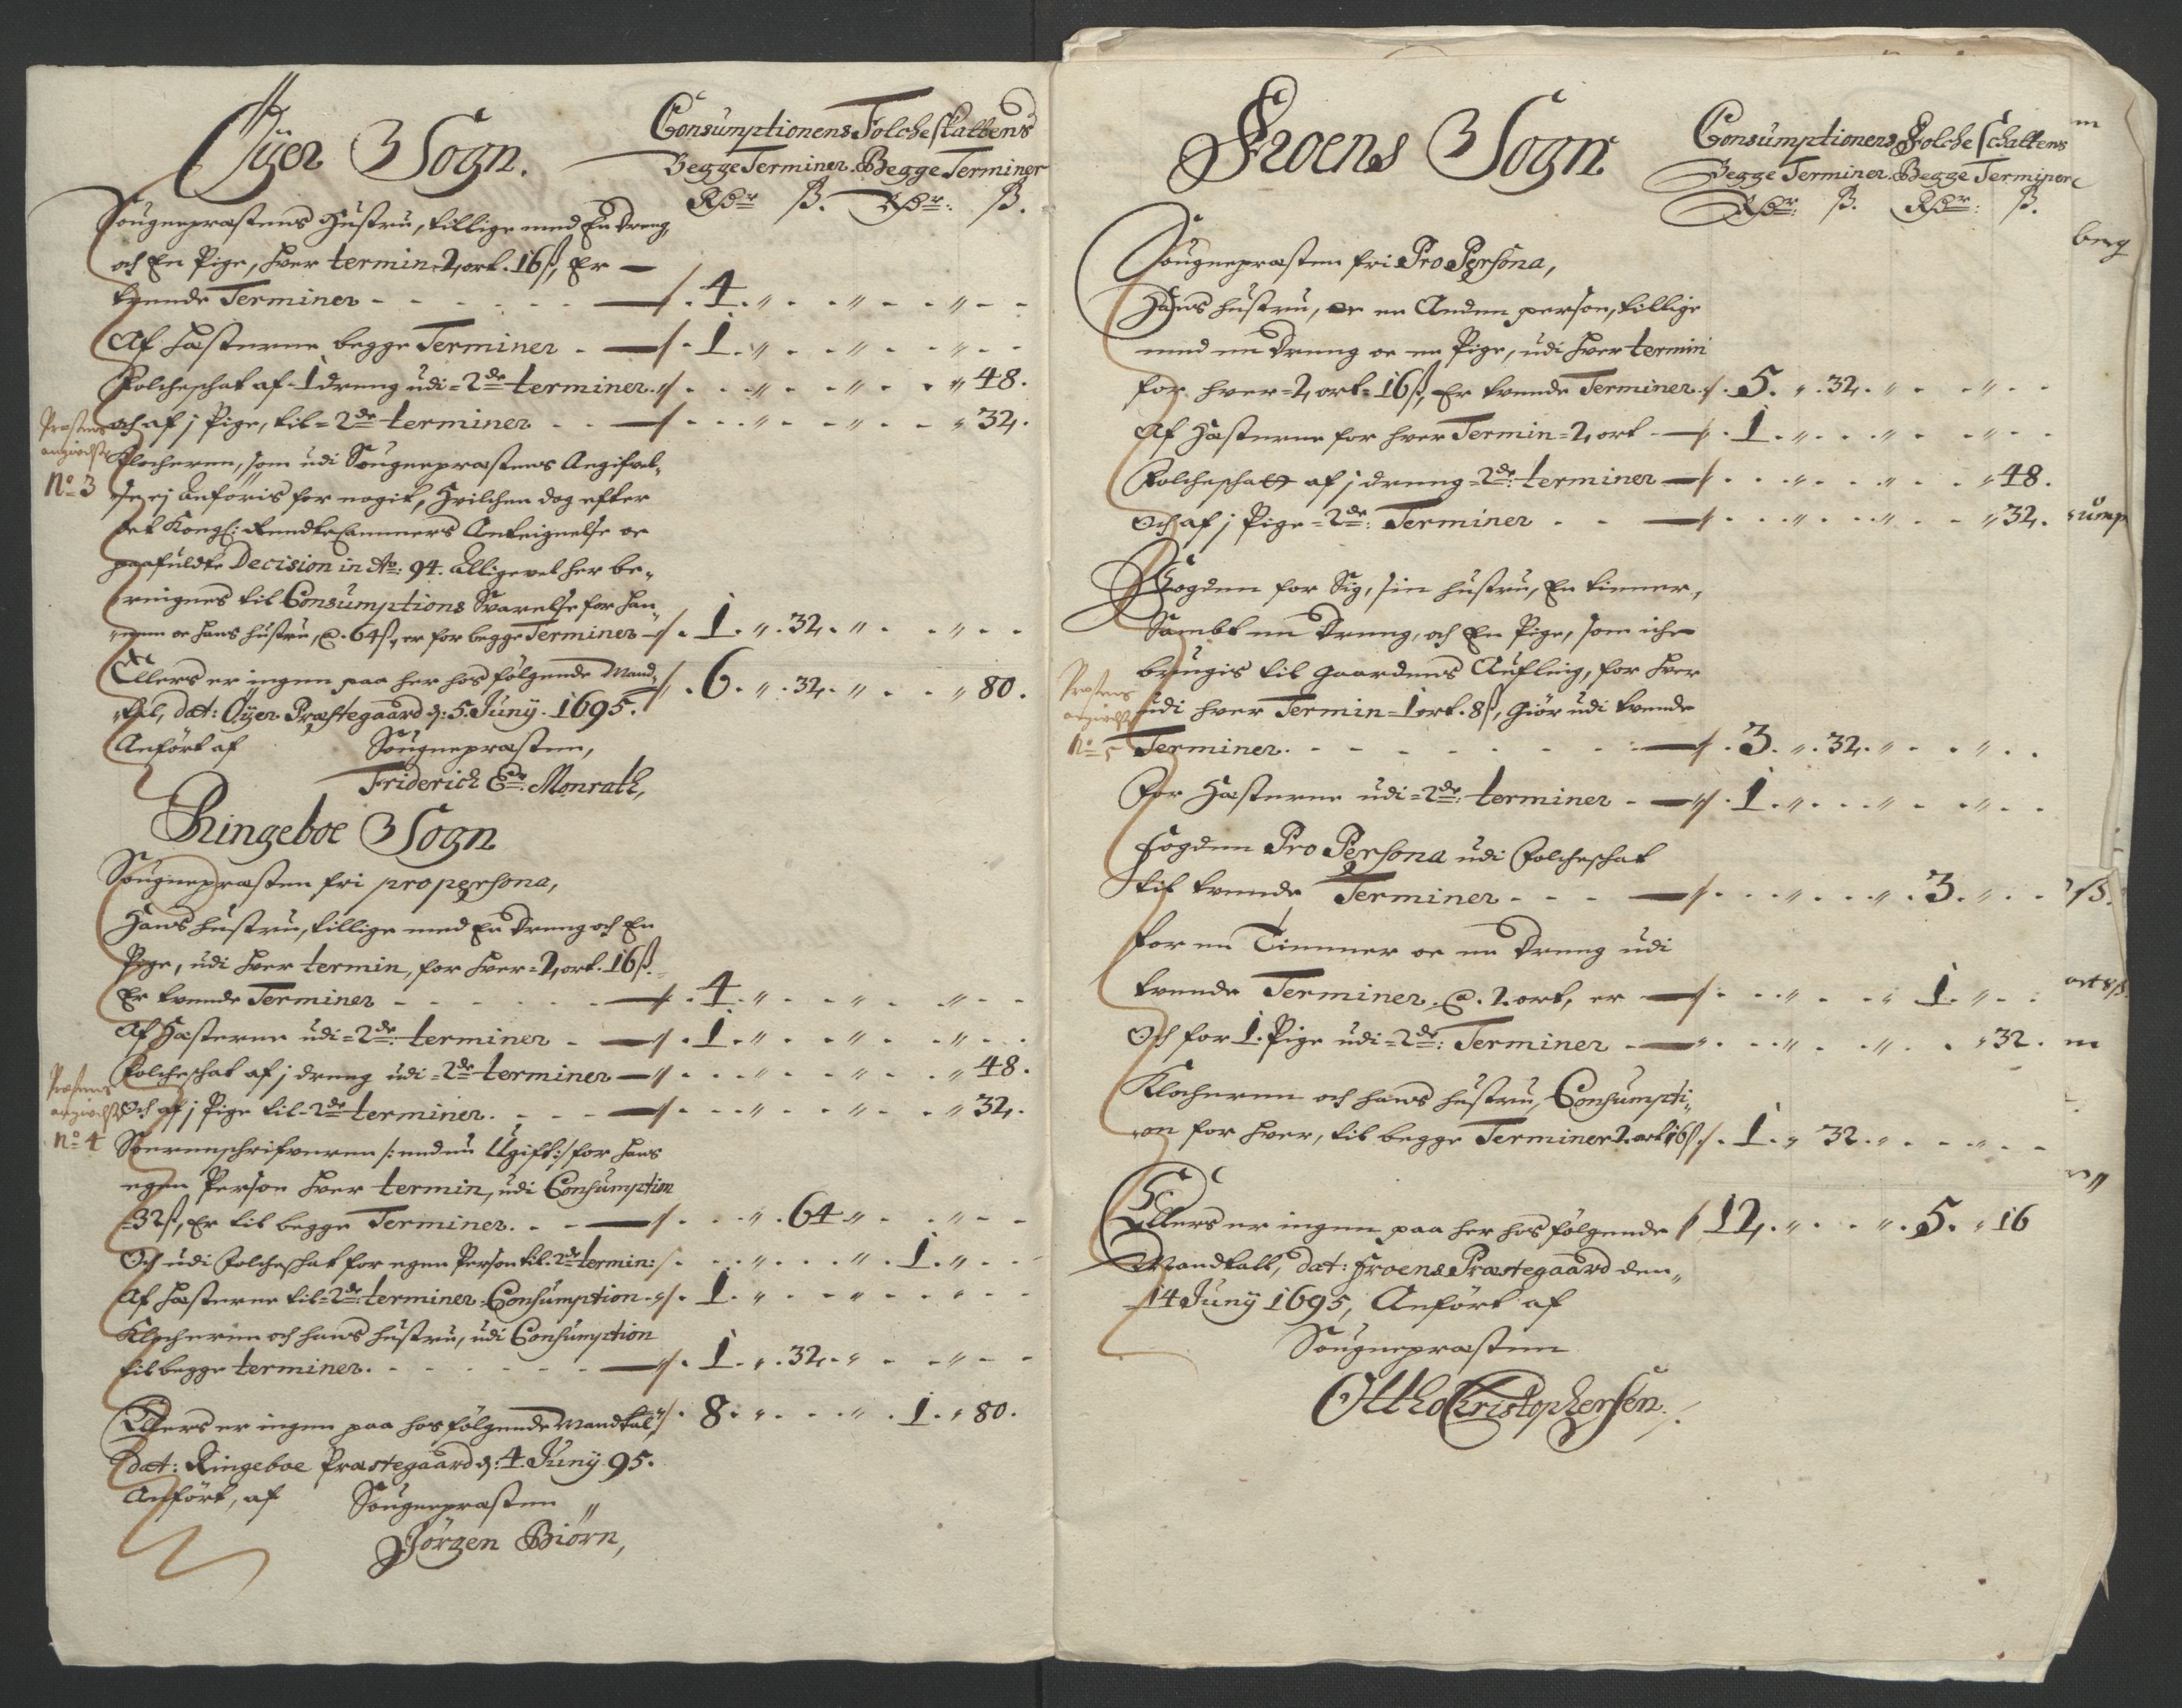 Öyer Sogn.
Consumptionens Folcheskattens
Begge Terminer. Begge Terminer
Rdr ß. Rdr: ß.
Sougnepræstens Hustru, tillige med En dreng,
och En Pige, hver termin 2 ort. 16 ß, Er
tvende Terminer - 4. „ „ „
Af hæsterne begge Terminer - 1. „ „ „
Folcheschat af 1 dreng udi 2de terminer. „ „ „ 48.
och af j Pige, til 2de terminer „ „ „ 32.
Præstens
angivelse
No 3
Klocheren, som udi Sougnepræstens Angifvel-
se ej anföris for nogit, Hvilchen dog efter
det Kongl: Rendte Cammers Anteignelse oc
paafuldte Decision in Ao: 94. alligevel her be-
reignes til Consumptions Svarelse for han-
nem oc hans hustru, @. 64 ß, er for begge Terminer 1. „ 32. „ „
Ellers er ingen paa her hos fölgende Mand-
tal, dat: Öyer Præstegaard d: 5. Juny. 1695. 6. „ 32. „ „ 80.
Anfört af Sougnepræsten,
Friderich Monrath,
Ringeboe Sogn
Sougnepræsten fri pro persona,
Hans hustru, tillige med En dreng och En
Pige, udi hver termin, for hver 2 ort. 16 ß.
Er tvende Terminer - 4. „ „ „
Af Hæsterne udi 2de: terminer - 1. „ „ „
Folcheschat af j dreng udi 2de terminer „ „ „ 48.
Och af j Pige til 2de terminer. „ „ „ 32.
Præstens
angivelse
No 4
Sorenschrifveren /: endnu Ugift :/ for hans
egen Person hver termin, udi Consumption
32 ß, Er til begge Terminer. „ 64 „ „
Och udi Folcheschat for egen Person til 2de termin: „ „ 1. „
Af hæsterne til 2de: terminer Consumption. 1. „ „ „
Klocheren och hans hustru, udi Consumption
til begge terminer. 1. „ 32. „ „
Ellers er ingen paa hos fölgende Mandtal 8. „ „ 1. „ 80.
dat: Ringeboe Præstegaard d: 4. Juny 95.
Anfört, af Sougnepræsten
Jörgen Biörn,
Froens Sogn
Consumptionens Folcheschattens
Begge Terminer. Begge Terminer
Rdr: ß. Rdr: ß.
Sougnepræsten fri Pro Persona,
Hans hustru, oc en Anden person, tillige
med en dreng oc en Pige, udi hver termin
for hver 2 ort 16 ß, Er tvende Terminer. 5. „ 32. „ „
Af Hæsterne for hver Termin 2 ort - 1. „ „ „
Folcheschatt af j dreng 2de: terminer „ „ „ 48.
Och af j Pige 2de: Terminer „ „ „ 32.
Fogden for Sig, sin hustru, En tienner,
Sambt en dreng, och En Pige, som iche
brugis til gaardens Aufling, for hver
udi hver Termin 1 ort. 8 ß, Giör udi tvende
Præstens
angivelse
No 5
Terminer. 3. „ 32. „ „
For Hæsterne udi 2de: terminer - 1. „ „ „
Fogden Pro Persona udi Folcheschat
til tvende Terminer - „ „ 3. „
for en Tienner oc en dreng udi
tvende Terminer. @. 2. ort, er „ „ 1. „
Och for 1. Pige udi 2de: Terminer „ „ „ 32.
Klocheren och hans hustru, Consumpti-
on for hver, til begge Terminer 2. ort 16 ß 1. „ 32. „ „
Ellers er ingen paa her hos fölgende 12. „ „ 5. „ 16
Mandtall, dat: Froens Præstegaard den
14 Juny 1695, Anfört af
Sougnepræsten
Otto Christophersen.